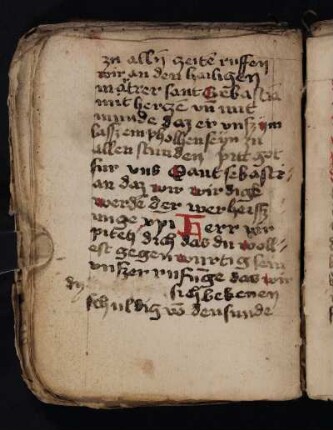 zu allñ zeitē ruffen
wir an den hailigen
martrer sant Sebastia
mit herczē vñ mit
munde daz er vns ym
lassz empholhen seyn zu
allen stunden pitt got
fur vns Sant sebasti-
an daz wir wirdigk
werde der verheissz
unge xpi Herr wir
piten dich das du woll-
est gegenwurtig sein
unszer das wir
sich bekenen
schuldig vō den sunde